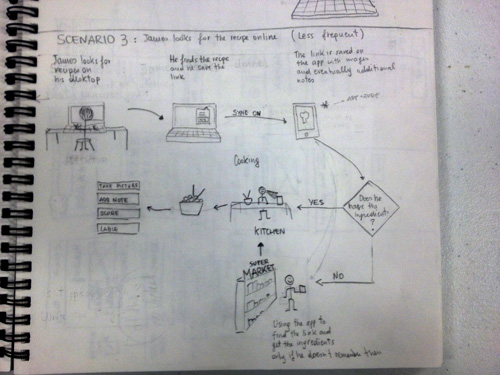 SCENARIO 3: James looks for the recipe online (Less frequent)
James looks for
recipes on
his desktop
He finds the recipe
and save the
link
The link is saved on
the app with images
and eventually additional
notes
SYNC ON
Cooking
TAKE PICTURE
ADD NOTE
SCORE
LABEL
YES
Does he
have the
ingredients
?
KITCHEN
NO
SUPER
MARKET
Using the app to
find the link and
get the ingredients
only if he doesn't remember them